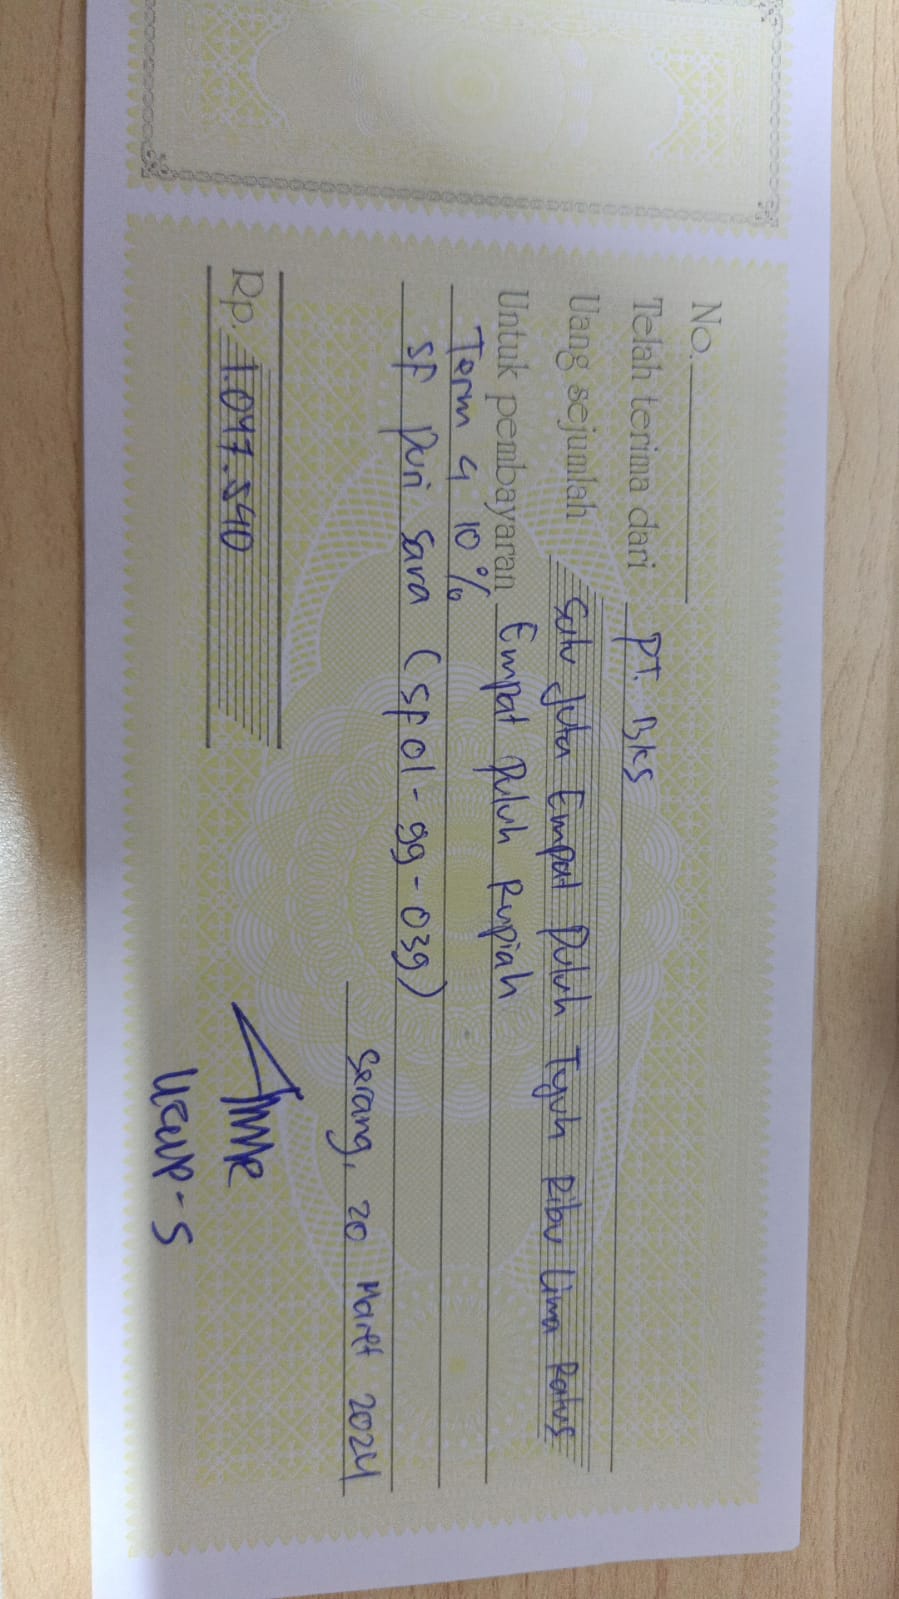 No.
Telah terima dari PT. BKS
Uang sejumlah Satu Juta Empat Puluh Tujuh Ribu Lima Ratus
Untuk pembayaran Empat Puluh Rupiah
Term 4 10%
SF Puri Sara (SF01-99-039)
Serang, 20 Maret 2024
Rp. 1.047.540
Ucup-S